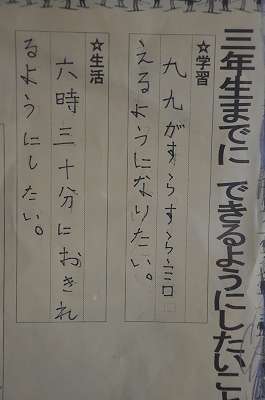 三年生までに できるようにしたいこと
☆学習
九九がすらすら言
えるようになりたい。
☆生活
六時三十分におきれ
るようにしたい。